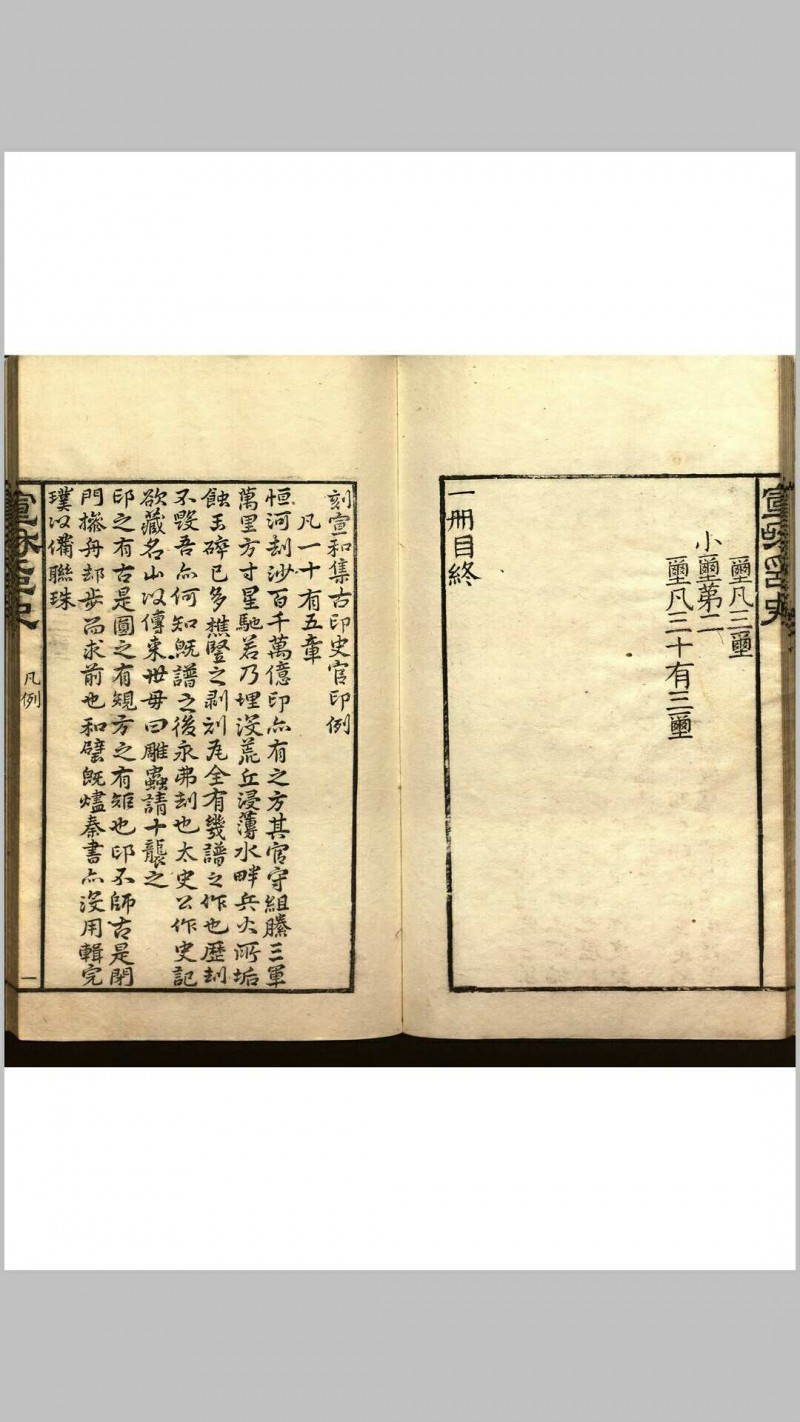 璽凡三璽
小璽第二
璽凡三十有三璽
一冊目終
刻宣和集古印史官印例
凡一十有五章
恒河刦沙百千萬億印亦有之方其官守組縢三軍
萬里方寸星馳若乃埋沒荒丘浸薄水畔兵火所垢
蝕玉碎已多樵豎之剥刓瓦全有幾譜之作也歷刦
不毀吾亦何知既譜之後永弗刦也太史公作史記
欲藏名山以傳來世毋曰雕蟲請十襲之
印之有古是圓之有規方之有矩也印不師古是閉
門撡舟却步而求前也和璧既燼秦書亦沒用輯完
璞以備聯珠
凡例
一